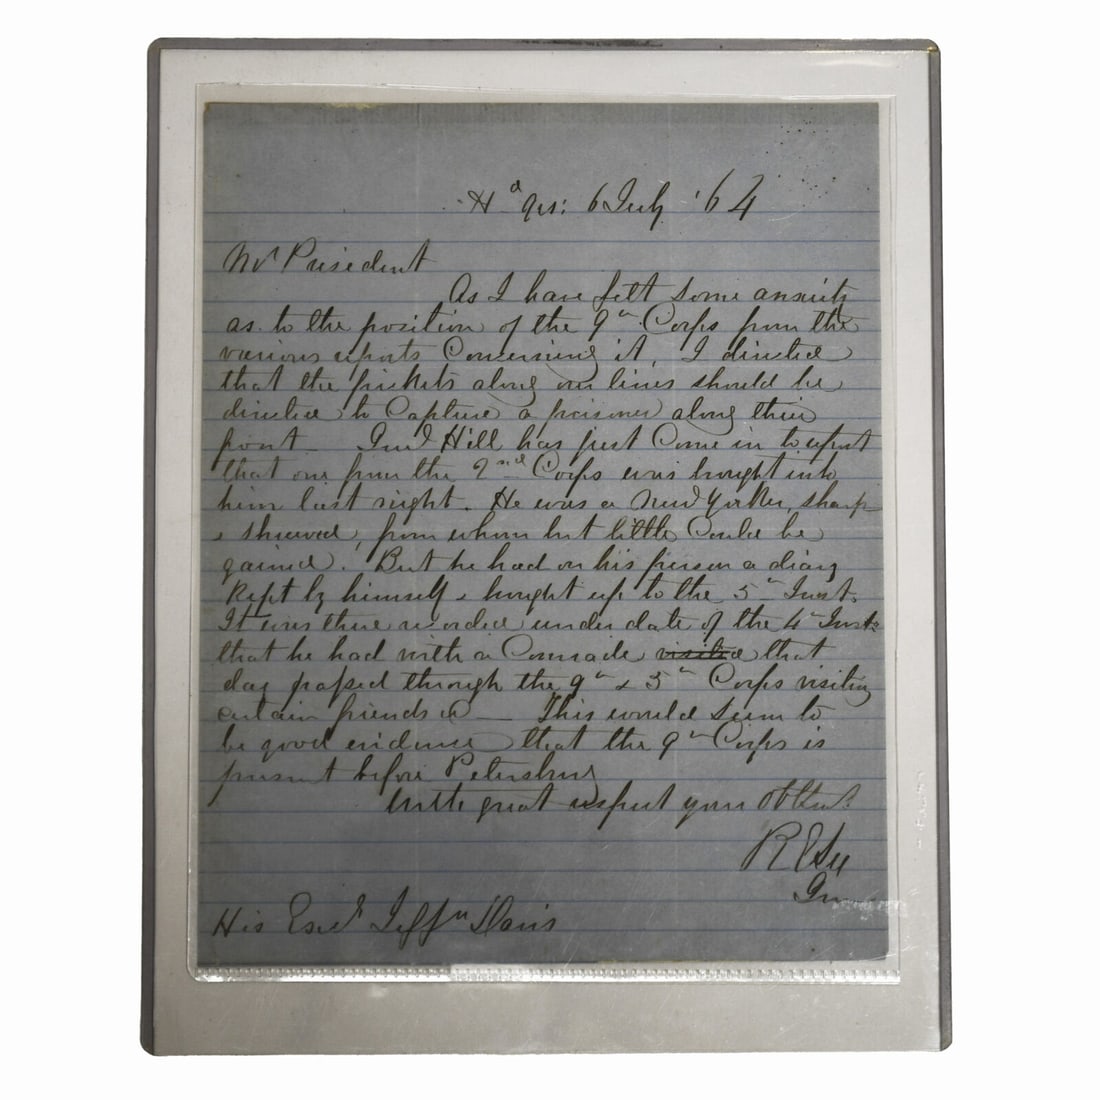 Hd qrs: 6 July '64
Mr President
As I have felt some anxiety
as to the position of the 9th Corps from the
various reports concerning it, I directed
that the pickets along our lines should be
directed to capture a prisoner along their
front — Genl Hill has just come in to report
that one from the 9th Corps was brought into
him last night. He was a New Yorker, sharp
& shrewd, from whom but little could be
gained. But he had on his person a diary
kept by himself & brought up to the 5th Inst.
It was there recorded under date of the 4th Inst:
that he had with a Comrade visited that
day passed through the 9th & 5th Corps visiting
certain friends &c — This would seem to
be good evidence that the 9th Corps is
present before Petersburg
With great respect your obt Servt
R E Lee
Genl
His Excy Jeffn Davis